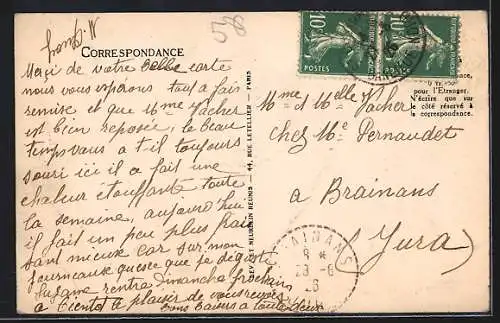 58
CORRESPONDANCE
Merci de votre Belle carte
nous vous espérons tout a fait
remise et que Mme Vacher
est bien reposée, le beau
temps vous a t-il toujours
souri ici il a fait une
chaleur étouffante toute
la semaine, aujourd'hui
il fait un peu plus frais
tant mieux car sur mon
fourneau que je déguste
Suzanne rentre Dimanche prochain
a Bientot le plaisir de vous revoir
bons Baisers a toutes deux
LEVY ET NEURDEIN RÉUNIS - 44, RUE LETELLIER - PARIS
10c
10c
POSTES
pour l'Etranger.
N'écrire que sur
le côté réservé à
la correspondance.
Mme et Melle Vacher
chez Me Pernaudet
a Brainans
(Jura)
BRAINANS